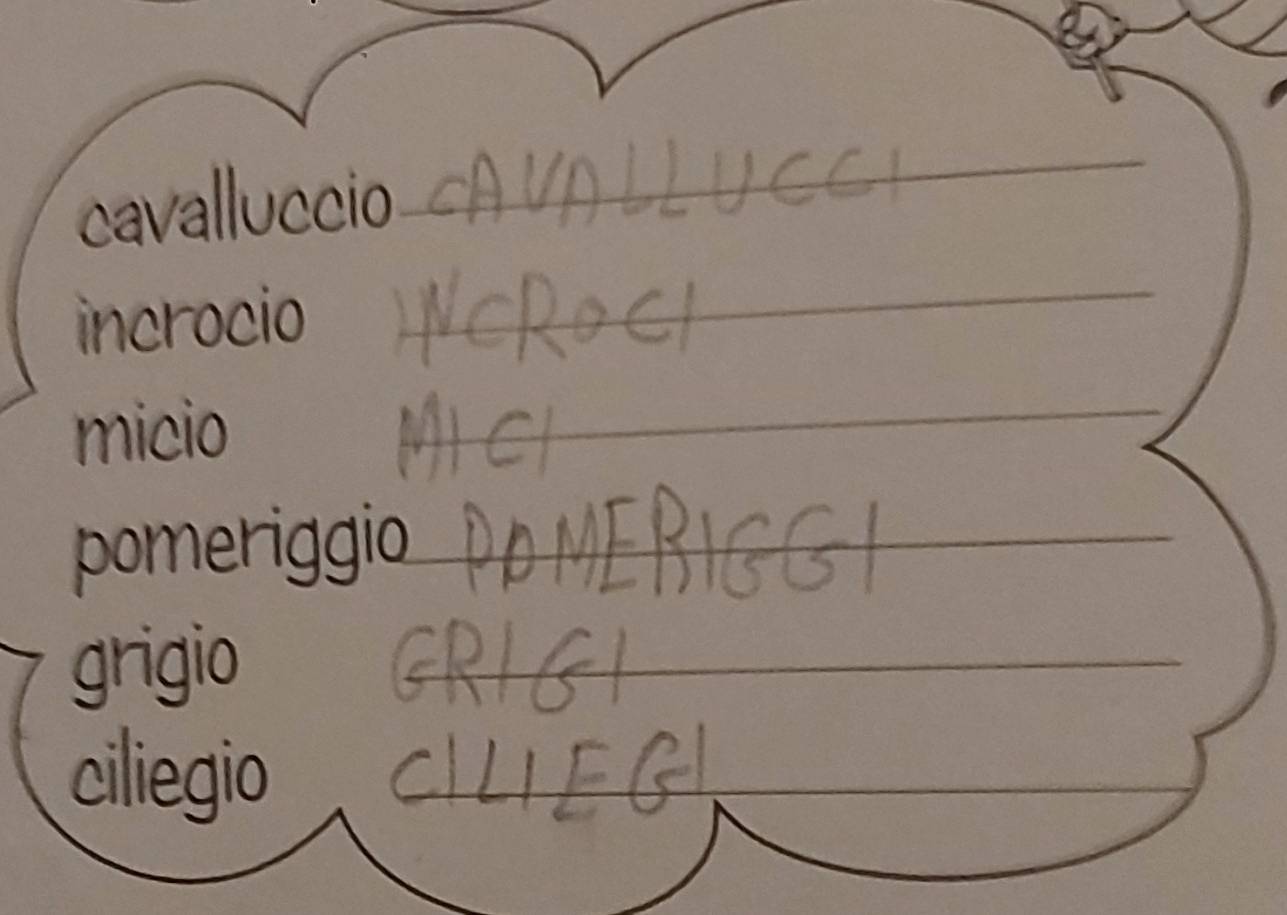 cavalluccio CAVALLUCCI
incrocio INCROCI
micio MICI
pomeriggio POMERIGGI
grigio GRIGI
ciliegio CILIEGI